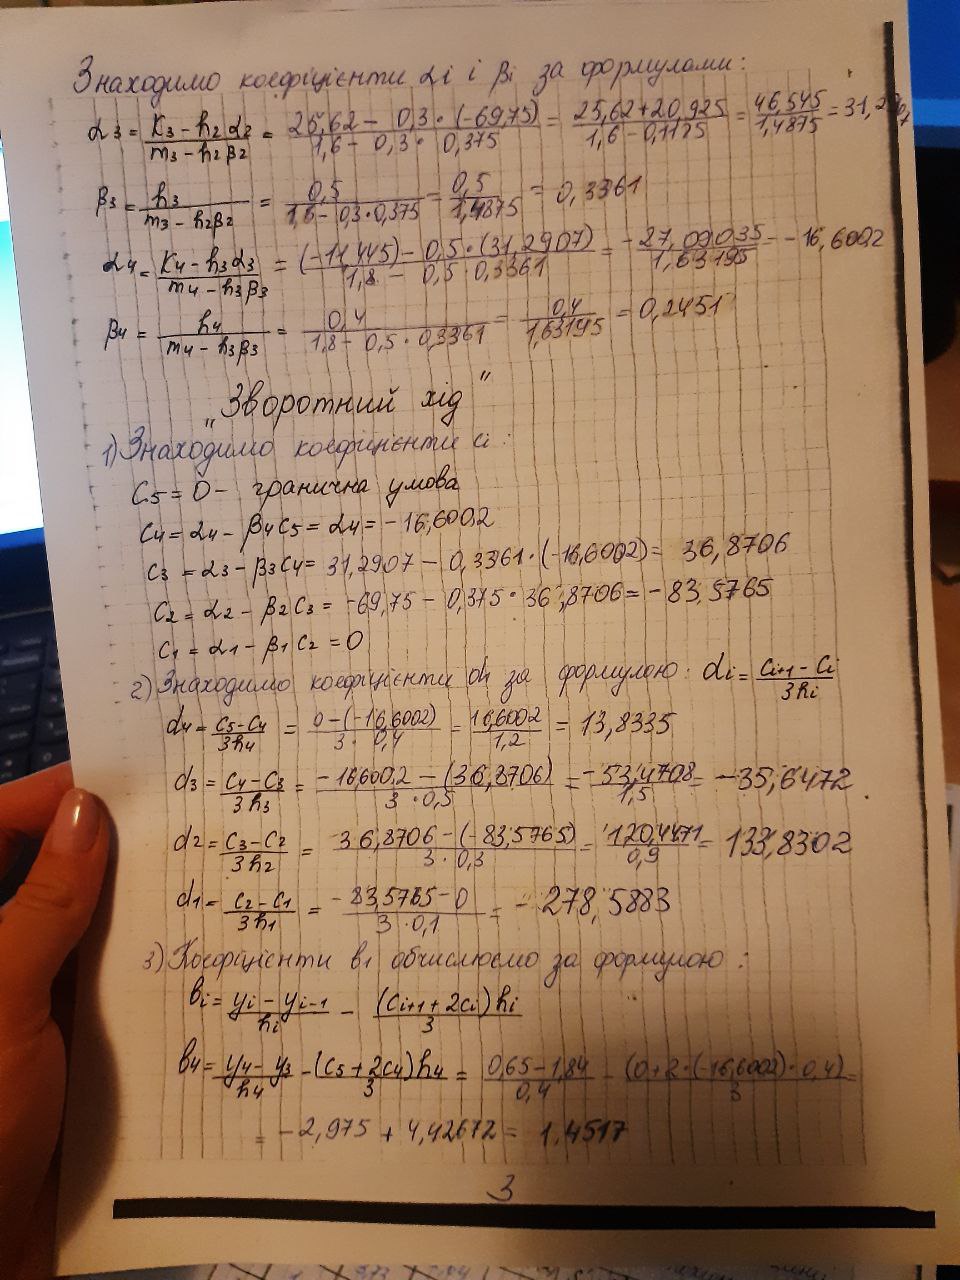 Знаходимо коефіцієнти αi і βi за формулами:
α3 = (K3 − h2α2)/(m3 − h2β2) = (25,62 − 0,3·(−69,75))/(1,6 − 0,3·0,375) = (25,62+20,925)/(1,6 − 0,1125) = 46,545/1,4875 = 31,2907
β3 = h3/(m3 − h2β2) = 0,5/(1,6 − 0,3·0,375) = 0,5/1,4875 = 0,3361
α4 = (K4 − h3α3)/(m4 − h3β3) = ((−11,445) − 0,5·(31,2907))/(1,8 − 0,5·0,3361) = −27,09035/1,63195 = −16,6002
β4 = h4/(m4 − h3β3) = 0,4/(1,8 − 0,5·0,3361) = 0,4/1,63195 = 0,2451
„Зворотний хід"
1) Знаходимо коефіцієнти ci:
C5 = 0 − гранична умова
C4 = α4 − β4C5 = α4 = −16,6002
C3 = α3 − β3C4 = 31,2907 − 0,3361·(−16,6002) = 36,8706
C2 = α2 − β2C3 = −69,75 − 0,375·36,8706 = −83,5765
C1 = α1 − β1C2 = 0
2) Знаходимо коефіцієнти di за формулою: di = (Ci+1 − Ci)/3hi
d4 = (C5−C4)/3h4 = (0−(−16,6002))/(3·0,4) = 16,6002/1,2 = 13,8335
d3 = (C4−C3)/3h3 = (−16,6002 − (36,8706))/(3·0,5) = −53,4708/1,5 = −35,6472
d2 = (C3−C2)/3h2 = (36,8706−(−83,5765))/(3·0,3) = 120,4471/0,9 = 133,8302
d1 = (C2−C1)/3h1 = (−83,5765−0)/(3·0,1) = −278,5883
3) Коефіцієнти bi обчислюємо за формулою:
bi = (yi − yi−1)/hi − (Ci+1+2Ci)hi/3
b4 = (y4 − y3)/h4 − (C5+2C4)h4/3 = (0,65−1,84)/0,4 − (0+2·(−16,6002)·0,4)/3 =
= −2,975 + 4,42672 = 1,4517
3